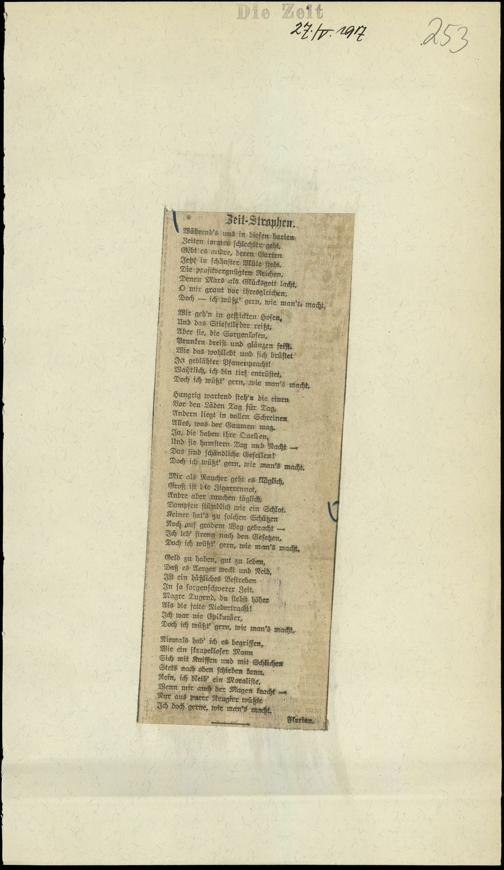 Die Zeit
27. IV. 1917
253
Zeit-Strophen.
Während's uns in diesen harten
Zeiten immer schlechter geht,
Gibt es andre, deren Garten
Jetzt in schönster Blüte steht.
Die profitvergnügten Reichen,
Denen Mars als Glücksgott lacht,
O mir graut vor ihresgleichen,
Doch — ich wüßt' gern, wie man's macht.
Wir geh'n in geflickten Hosen,
Und das Stiefelleder reißt,
Aber sie, die Sorgenlosen,
Prunken dreist und glänzen feist.
Wie das wohllebt und sich brüstet
In geblähter Pfauenpracht!
Wahrlich, ich bin tief entrüstet,
Doch ich wüßt' gern, wie man's macht.
Hungrig wartend steh'n die einen
Vor den Läden Tag für Tag,
Andern liegt in vollen Schreinen
Alles, was der Gaumen mag.
Ja, die haben ihre Quellen,
Und sie hamstern Tag und Nacht —
Das sind schändliche Gesellen!
Doch ich wüßt' gern, wie man's macht.
Mir als Raucher geht es kläglich,
Groß ist die Zigarrennot,
Andre aber rauchen täglich,
Dampfen stündlich wie ein Schlot.
Keiner hat's zu solchen Schätzen
Noch auf gradem Weg gebracht —
Ich leb' streng nach den Gesetzen,
Doch ich wüßt' gern, wie man's macht.
Geld zu haben, gut zu leben,
Daß es Aerger weckt und Neid,
Ist ein häßliches Bestreben
In so sorgenschwerer Zeit.
Magre Tugend, du stehst höher
Als die feiste Niedertracht!
Ich war nie Epikuräer,
Doch ich wüßt' gern, wie man's macht.
Niemals hab' ich es begriffen,
Wie ein skrupelloser Mann
Sich mit Kniffen und mit Schlichen
Stets nach oben schieben kann.
Nein, ich bleib' ein Moraliste,
Wenn mir auch der Magen kracht —
Nur aus purer Neugier wüßte
Ich doch gerne, wie man's macht.
Florian.